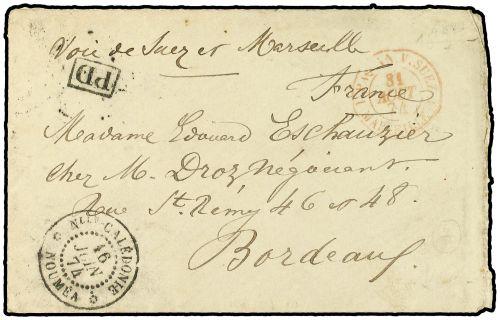 Voie de Suez et Marseille
PD
V. SUEZ
31
AOUT
France
Madame Edouard Eschauzier
chez M. Droz Négociant.
Rue St. Rémy 46 et 48.
Bordeaux
Nlle CALÉDONIE
16
JUIN
74
NOUMÉA